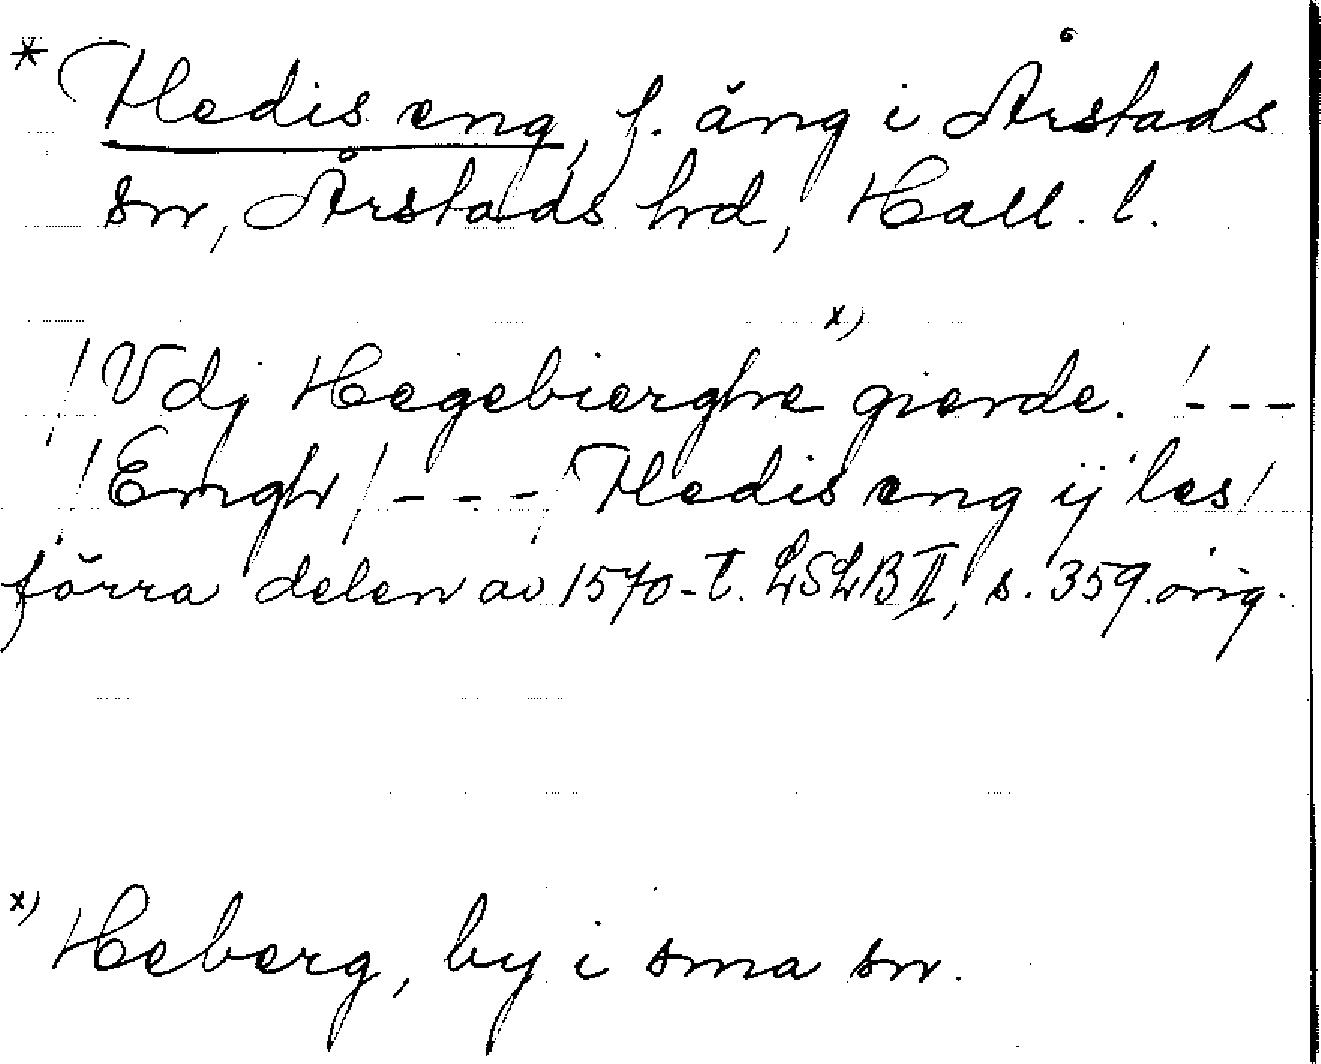 * Hedis eng, f. äng i Årstads
sn, Årstads hd, Hall. l.
/Vdj Hegebierghe x) gierde. /---
/Engh/---/Hedis eng ij les/
förra delen av 1570-t. LSLB II, s. 359. orig.
x) Heberg, by i sma sn.